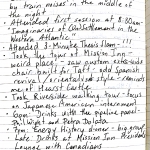 by train noises in the middle of the night
• Attended first session at 8:00am
"Imaginaries of Quinta in the Western Atlantic"
• Attended 3-Minute Thesis 11am!!!
• Took tour of Mission Inn
weird place: saw custom extra-wide chair built for Taft; odd Spanish revival/orientalist style - reminds me of Hearst Castle.
• Took Riverside walking tour: focus on Japanese American internment
• 6pm: Drinks with the pipeline panel
Bill Wyatt and Petra Dolata
• 7pm: Energy History dinner - big group
• Late Drinks at Mission Inn Presidential Lounge with Canadians